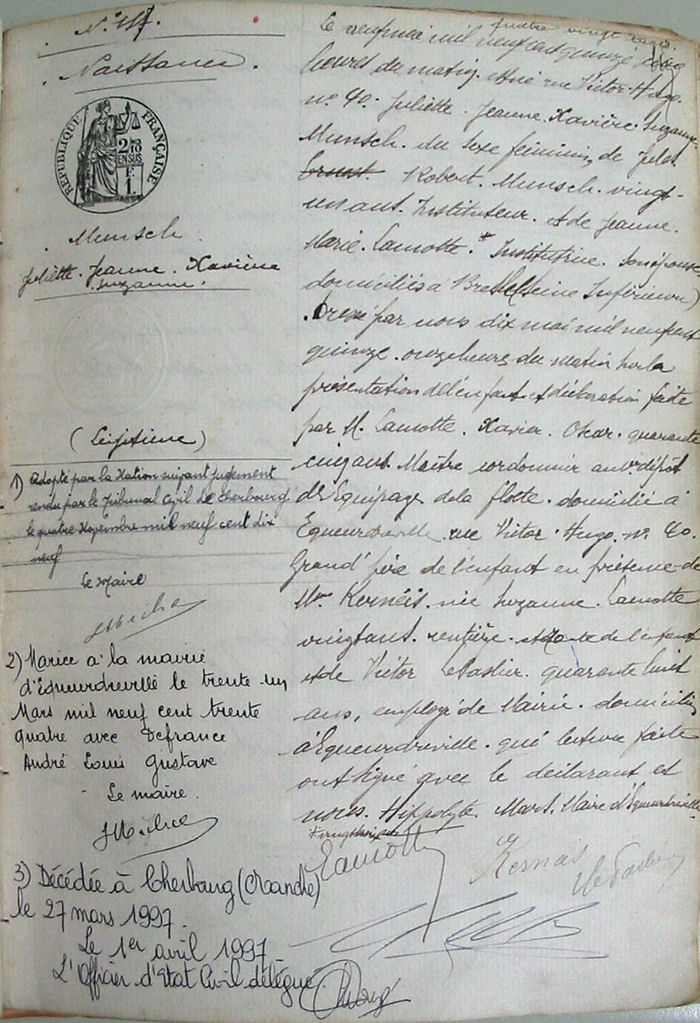 Naissance.
RÉPUBLIQUE FRANÇAISE
Munsch.
Juliette. Jeanne. Xavière
Suzanne.
(Légitime)
1) Adopté par la Nation suivant jugement
rendu par le Tribunal Civil de Cherbourg
le quatre Novembre mil neuf cent dix
neuf
Le Maire
2) Mariée à la mairie
d'Equeurdreville le trente un
Mars mil neuf cent trente
quatre avec Defrance
André Louis Gustave
Le maire.
3) Décédée à Cherbourg (Manche)
le 27 mars 1997.
Le 1er avril 1997
L'Officier d'Etat Civil délégué.
Le neuf mai mil neuf cent quinze
heures du matin, est née rue Victor Hugo.
no 40. Juliette. Jeanne. Xavière. Suzanne
Munsch. du sexe féminin, de Jules.
Ernest. Robert. Munsch. vingt-
un ans. Instituteur. et de Jeanne.
Marie. Lamotte. Institutrice. son épouse
domiciliés à (Seine Inférieure)
Dressé par nous dix mai mil neuf cent
quinze. onze heures du matin sur la
présentation de l'enfant et déclaration faite
par M. Lamotte. Xavier. Oscar. quarante
cinq ans. Maître cordonnier au dépôt
des Equipages de la flotte. domicilié à
Equeurdreville. rue Victor. Hugo. no 40.
Grand' père de l'enfant en présence de
Mme Kernéis. née Suzanne. Lamotte
vingt ans. rentière. tante de l'enfant
et de Victor quarante huit
ans, employé de Mairie. domiciliés
à Equeurdreville. qui lecture faite
ont signé avec le déclarant et
nous. Hippolyte. Mars. Maire d'Equeurdreville
Lamotte